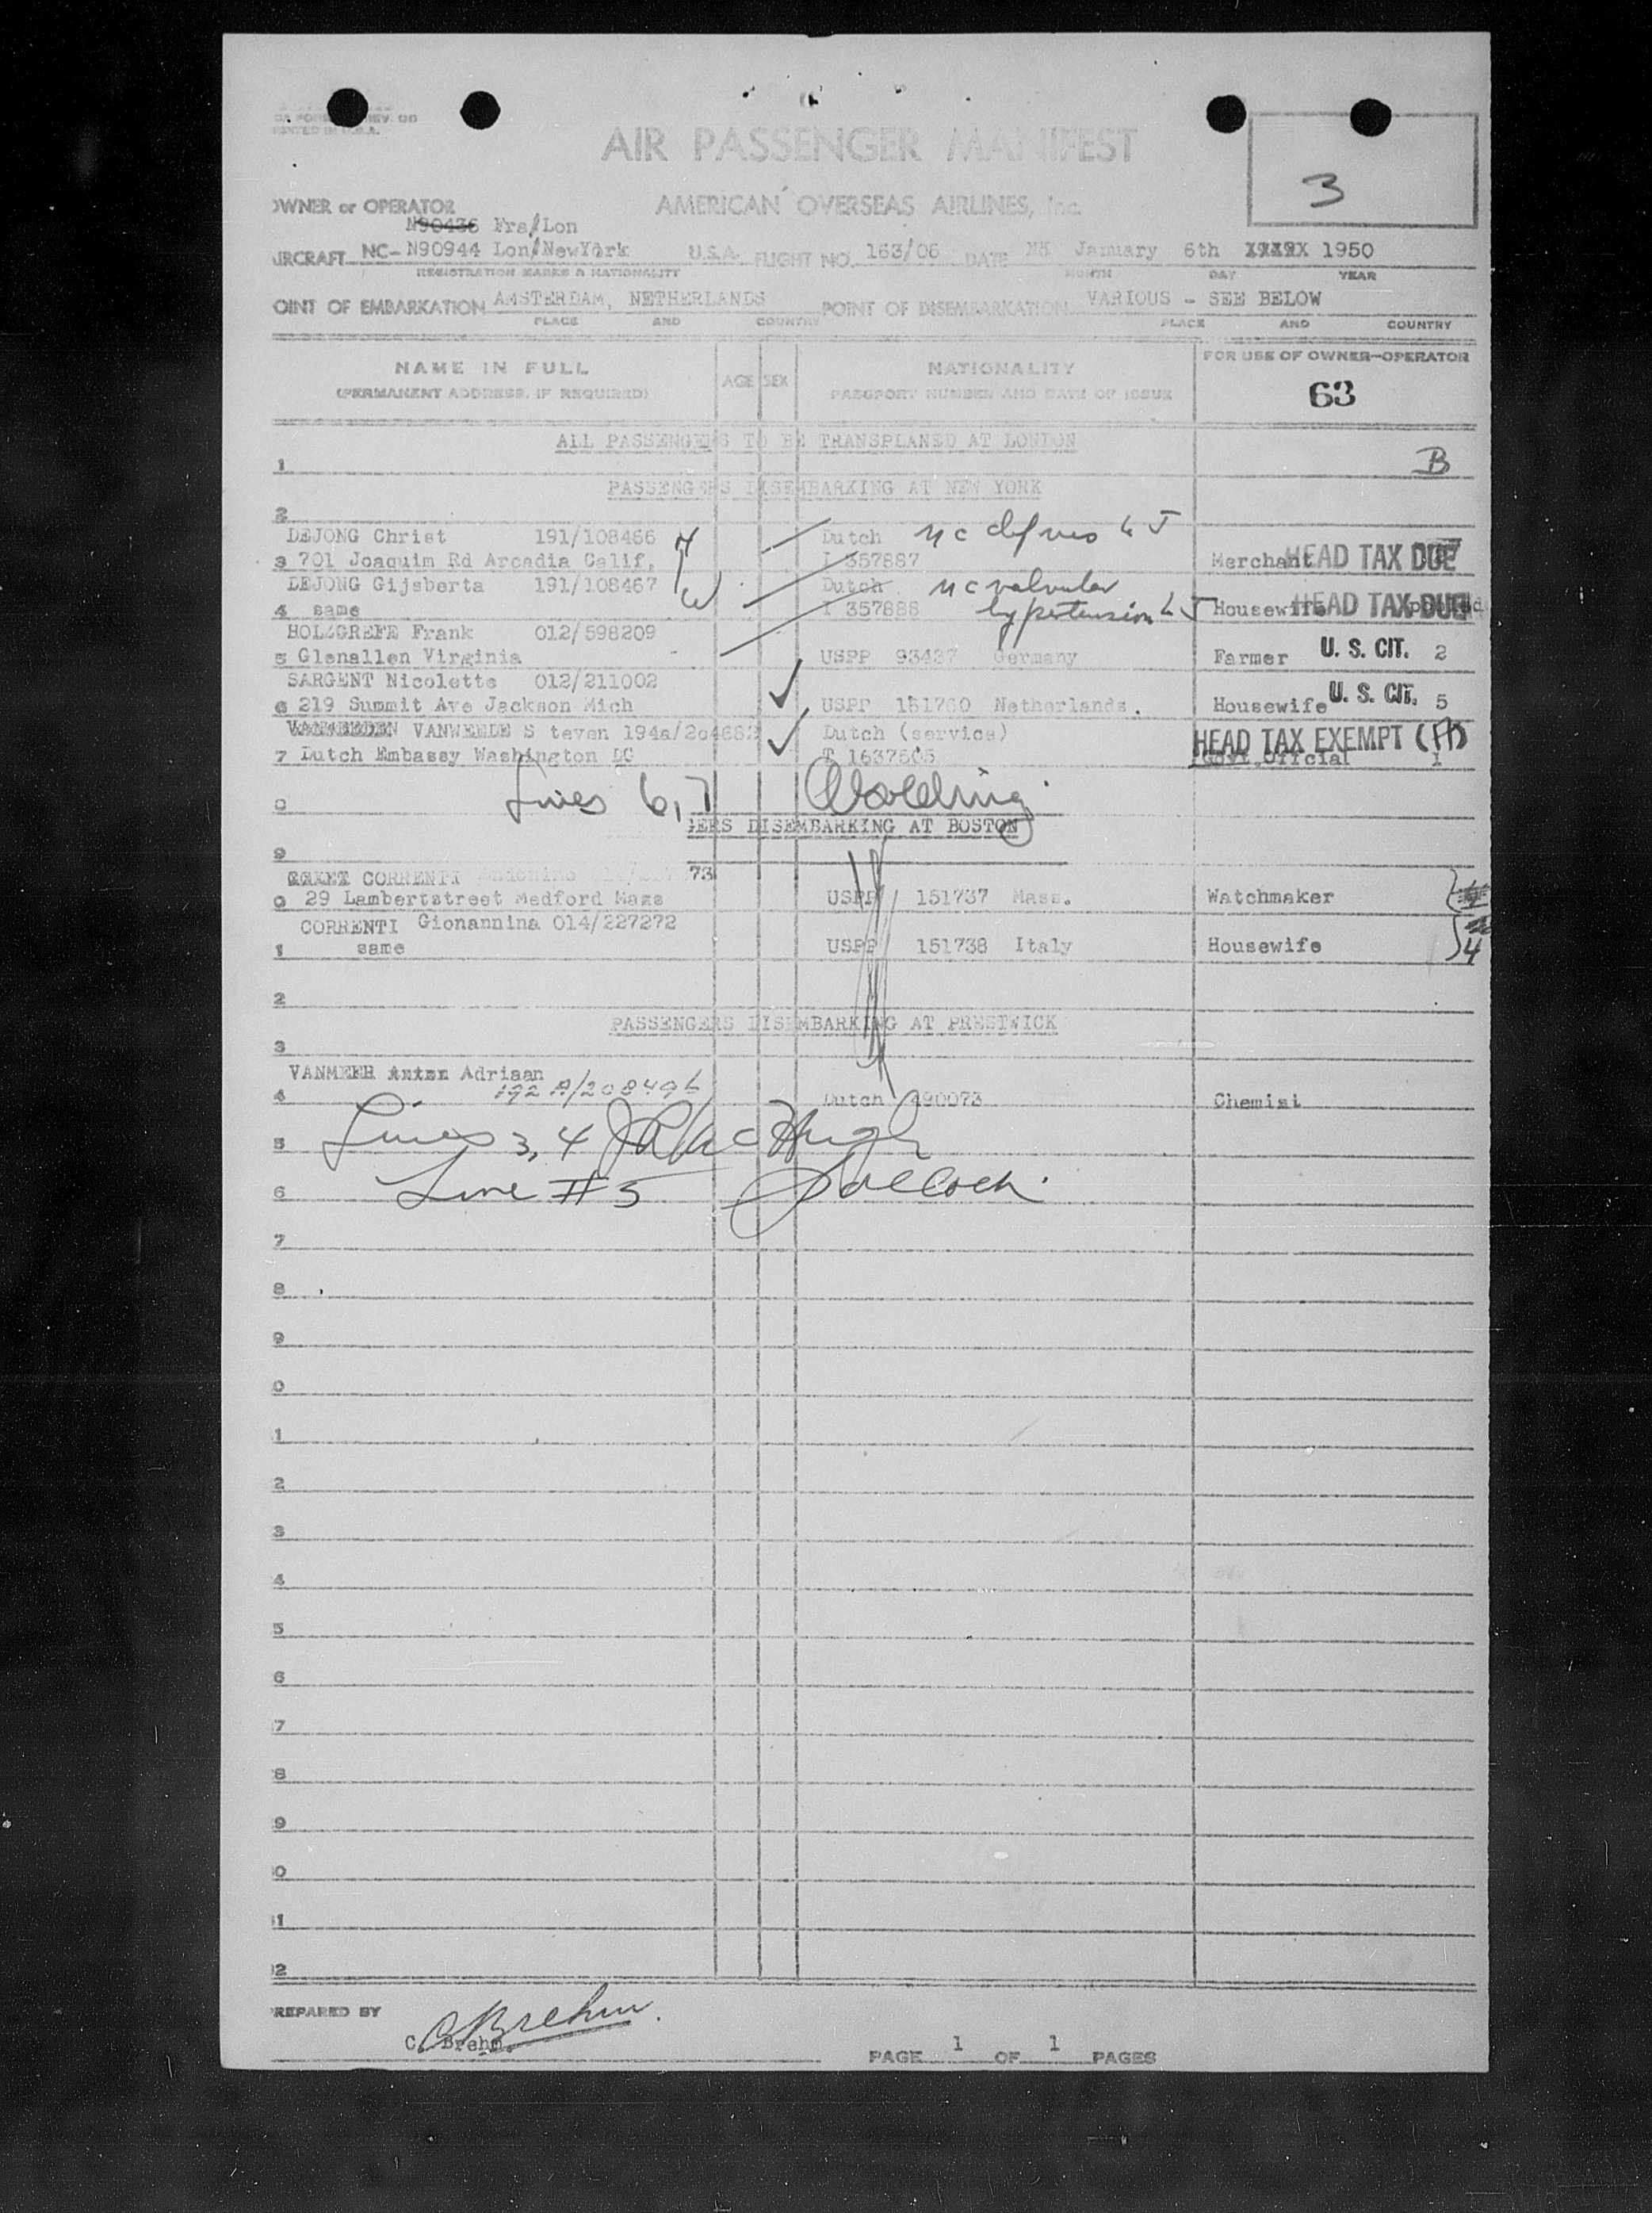 AIR PASSENGER MANIFEST
3
OWNER or OPERATOR
AMERICAN OVERSEAS AIRLINES, Inc.
N90436 Fra/Lon
AIRCRAFT NC- N90944 Lon/NewYork U.S.A. FLIGHT NO. 163/06 DATE January 6th 1950
REGISTRATION MARKS & NATIONALITY MONTH DAY YEAR
POINT OF EMBARKATION AMSTERDAM, NETHERLANDS POINT OF DISEMBARKATION VARIOUS - SEE BELOW
PLACE AND COUNTRY PLACE AND COUNTRY
NAME IN FULL AGE SEX NATIONALITY FOR USE OF OWNER-OPERATOR
(PERMANENT ADDRESS, IF REQUIRED) PASSPORT NUMBER AND DATE OF ISSUE 63
ALL PASSENGERS TO BE TRANSPLANED AT LONDON
1 B
PASSENGERS DISEMBARKING AT NEW YORK
2
DEJONG Christ 191/108466 H Dutch
3 701 Joaquim Rd Arcadia Calif. I 357887 Merchant HEAD TAX DUE
DEJONG Gijsberta 191/108467 W Dutch nc valvular
4 same I 357888 hypertension Housewife HEAD TAX DUE
HOLZGREFE Frank 012/598209
5 Glenallen Virginia USPP 93437 Germany Farmer U. S. CIT. 2
SARGENT Nicolette 012/211002
6 219 Summit Ave Jackson Mich USPP 151760 Netherlands. Housewife U. S. CIT. 5
VANWENDE S teven 194a/204682 Dutch (service)
7 Dutch Embassy Washington DC T 1637605 Govt. Official HEAD TAX EXEMPT 1
Lines 6, 7
GERS DISEMBARKING AT BOSTON
9
CORRENTI 73
0 29 Lambertstreet Medford Mass USPP 151737 Mass. Watchmaker
CORRENTI Gionannina 014/227272
1 same USPP 151738 Italy Housewife 4
2
PASSENGERS DISEMBARKING AT PRESTWICK
3
VANMEER Adriaan
4 192 A/208496 Dutch 490073 Chemist
5 Lines 3, 4
6 Line #5
7
8
9
0
1
2
3
4
5
6
7
8
9
0
1
2
PREPARED BY CBrehm.
C. Brehm.
PAGE 1 OF 1 PAGES